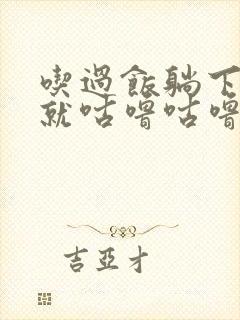 喫過飯躺下
就咕嚕咕嚕
吉亞才